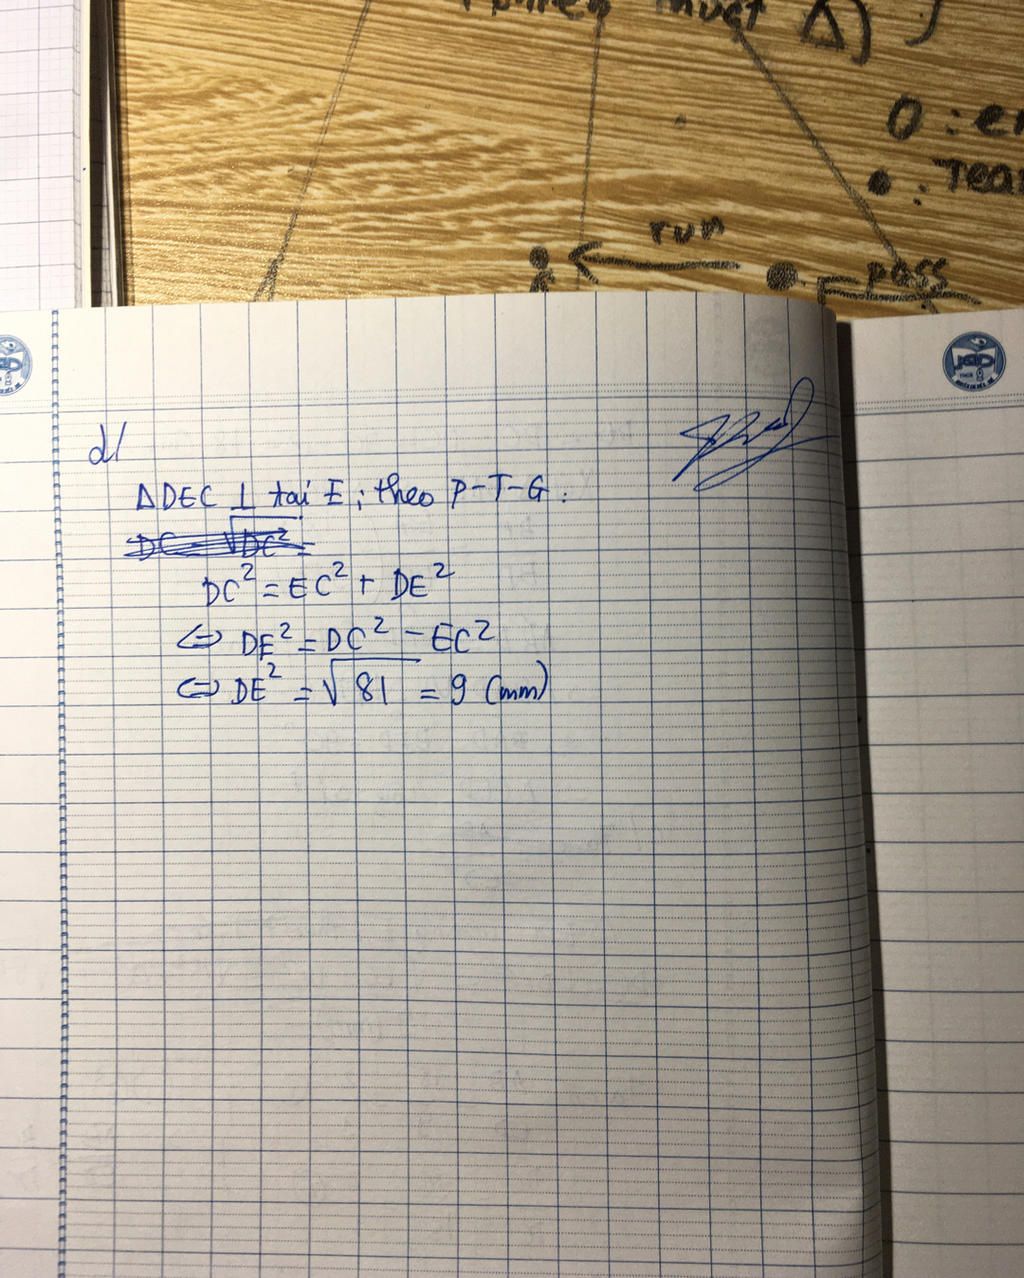 O : en
• : Tea
run
pass
d/
ΔDEC ⊥ tại E ; theo P-T-G :
DC = √DC² =
DC² = EC² + DE²
⇔ DE² = DC² - EC²
⇔ DE² = √81 = 9 (mm)